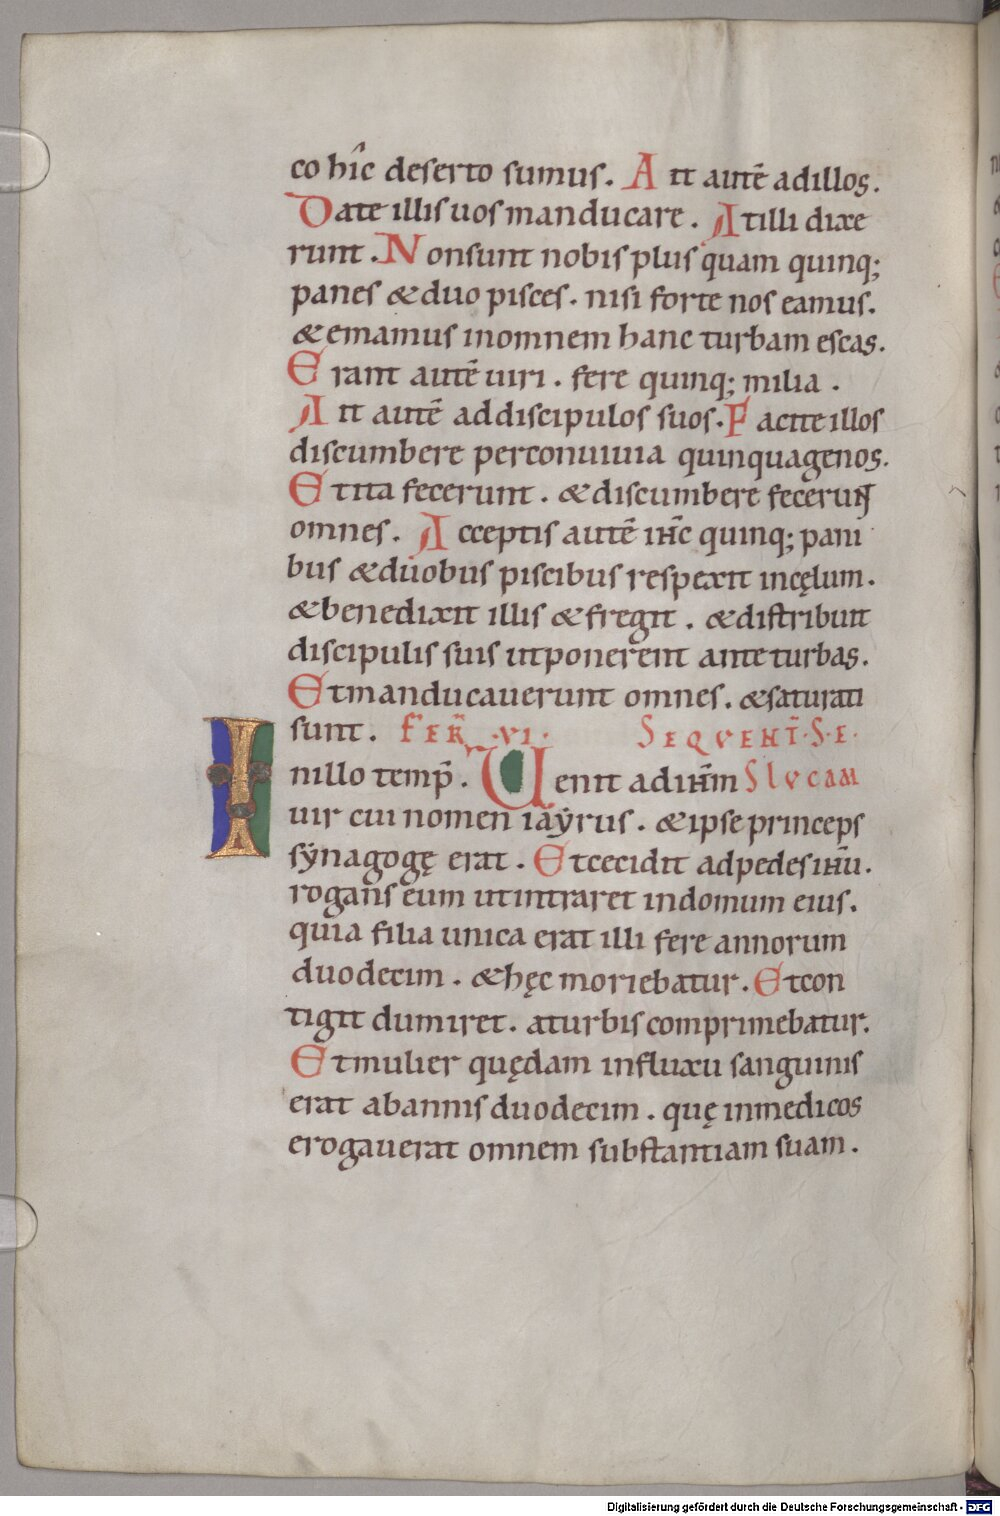 co hic deserto sumus. Ait autē adillos.
Date illis uos manducare. Atilli dixe
runt. Nonsunt nobis plus quam quinq;
panes & duo pisces. nisi forte nos eamus.
& emamus inomnem hanc turbam escas.
Erant autē uiri. fere quinq; milia.
Ait autē addiscipulos suos. Facite illos
discumbere perconuiuia quinquagenos.
Etita fecerunt. & discumbere fecerunt
omnes. Acceptis autē ihc̄ quinq; pani
bus & duobus piscibus respexit incęlum.
& benedixit illis & fregit. & distribuit
discipulis suis utponerent ante turbas.
Etmanducauerunt omnes. & saturati
sunt. FER̄ .VI. SEQVENTĪ.S.E.
Inillo temp̄. Uenit adihm̄ SLVCAM
uir cui nomen iaẏrus. & ipse princeps
sẏnagogę erat. Etcecidit adpedes ihū.
rogans eum utintraret indomum eius.
quia filia unica erat illi fere annorum
duodecim. & hęc moriebatur. Etcon
tigit dumiret. aturbis comprimebatur.
Etmulier quędam influxu sanguinis
erat abannis duodecim. quę inmedicos
erogauerat omnem substantiam suam.
Digitalisierung gefördert durch die Deutsche Forschungsgemeinschaft - DFG